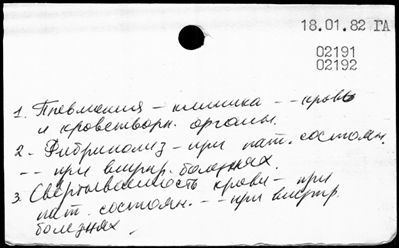 18.01.82 ГА
02191
02192
1. Пневмония – клиника – – кровь
и кроветворн. органы.
2. Фибринолиз – при пат. состоян.
– – при внутр. болезнях.
3. Свертываемость крови – при
пат. состоян. – – при внутр.
болезнях.